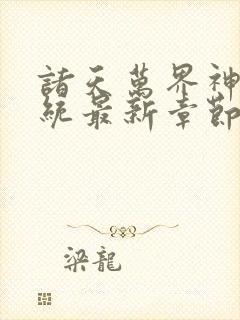 諸天萬界神
統最新章節
梁龍